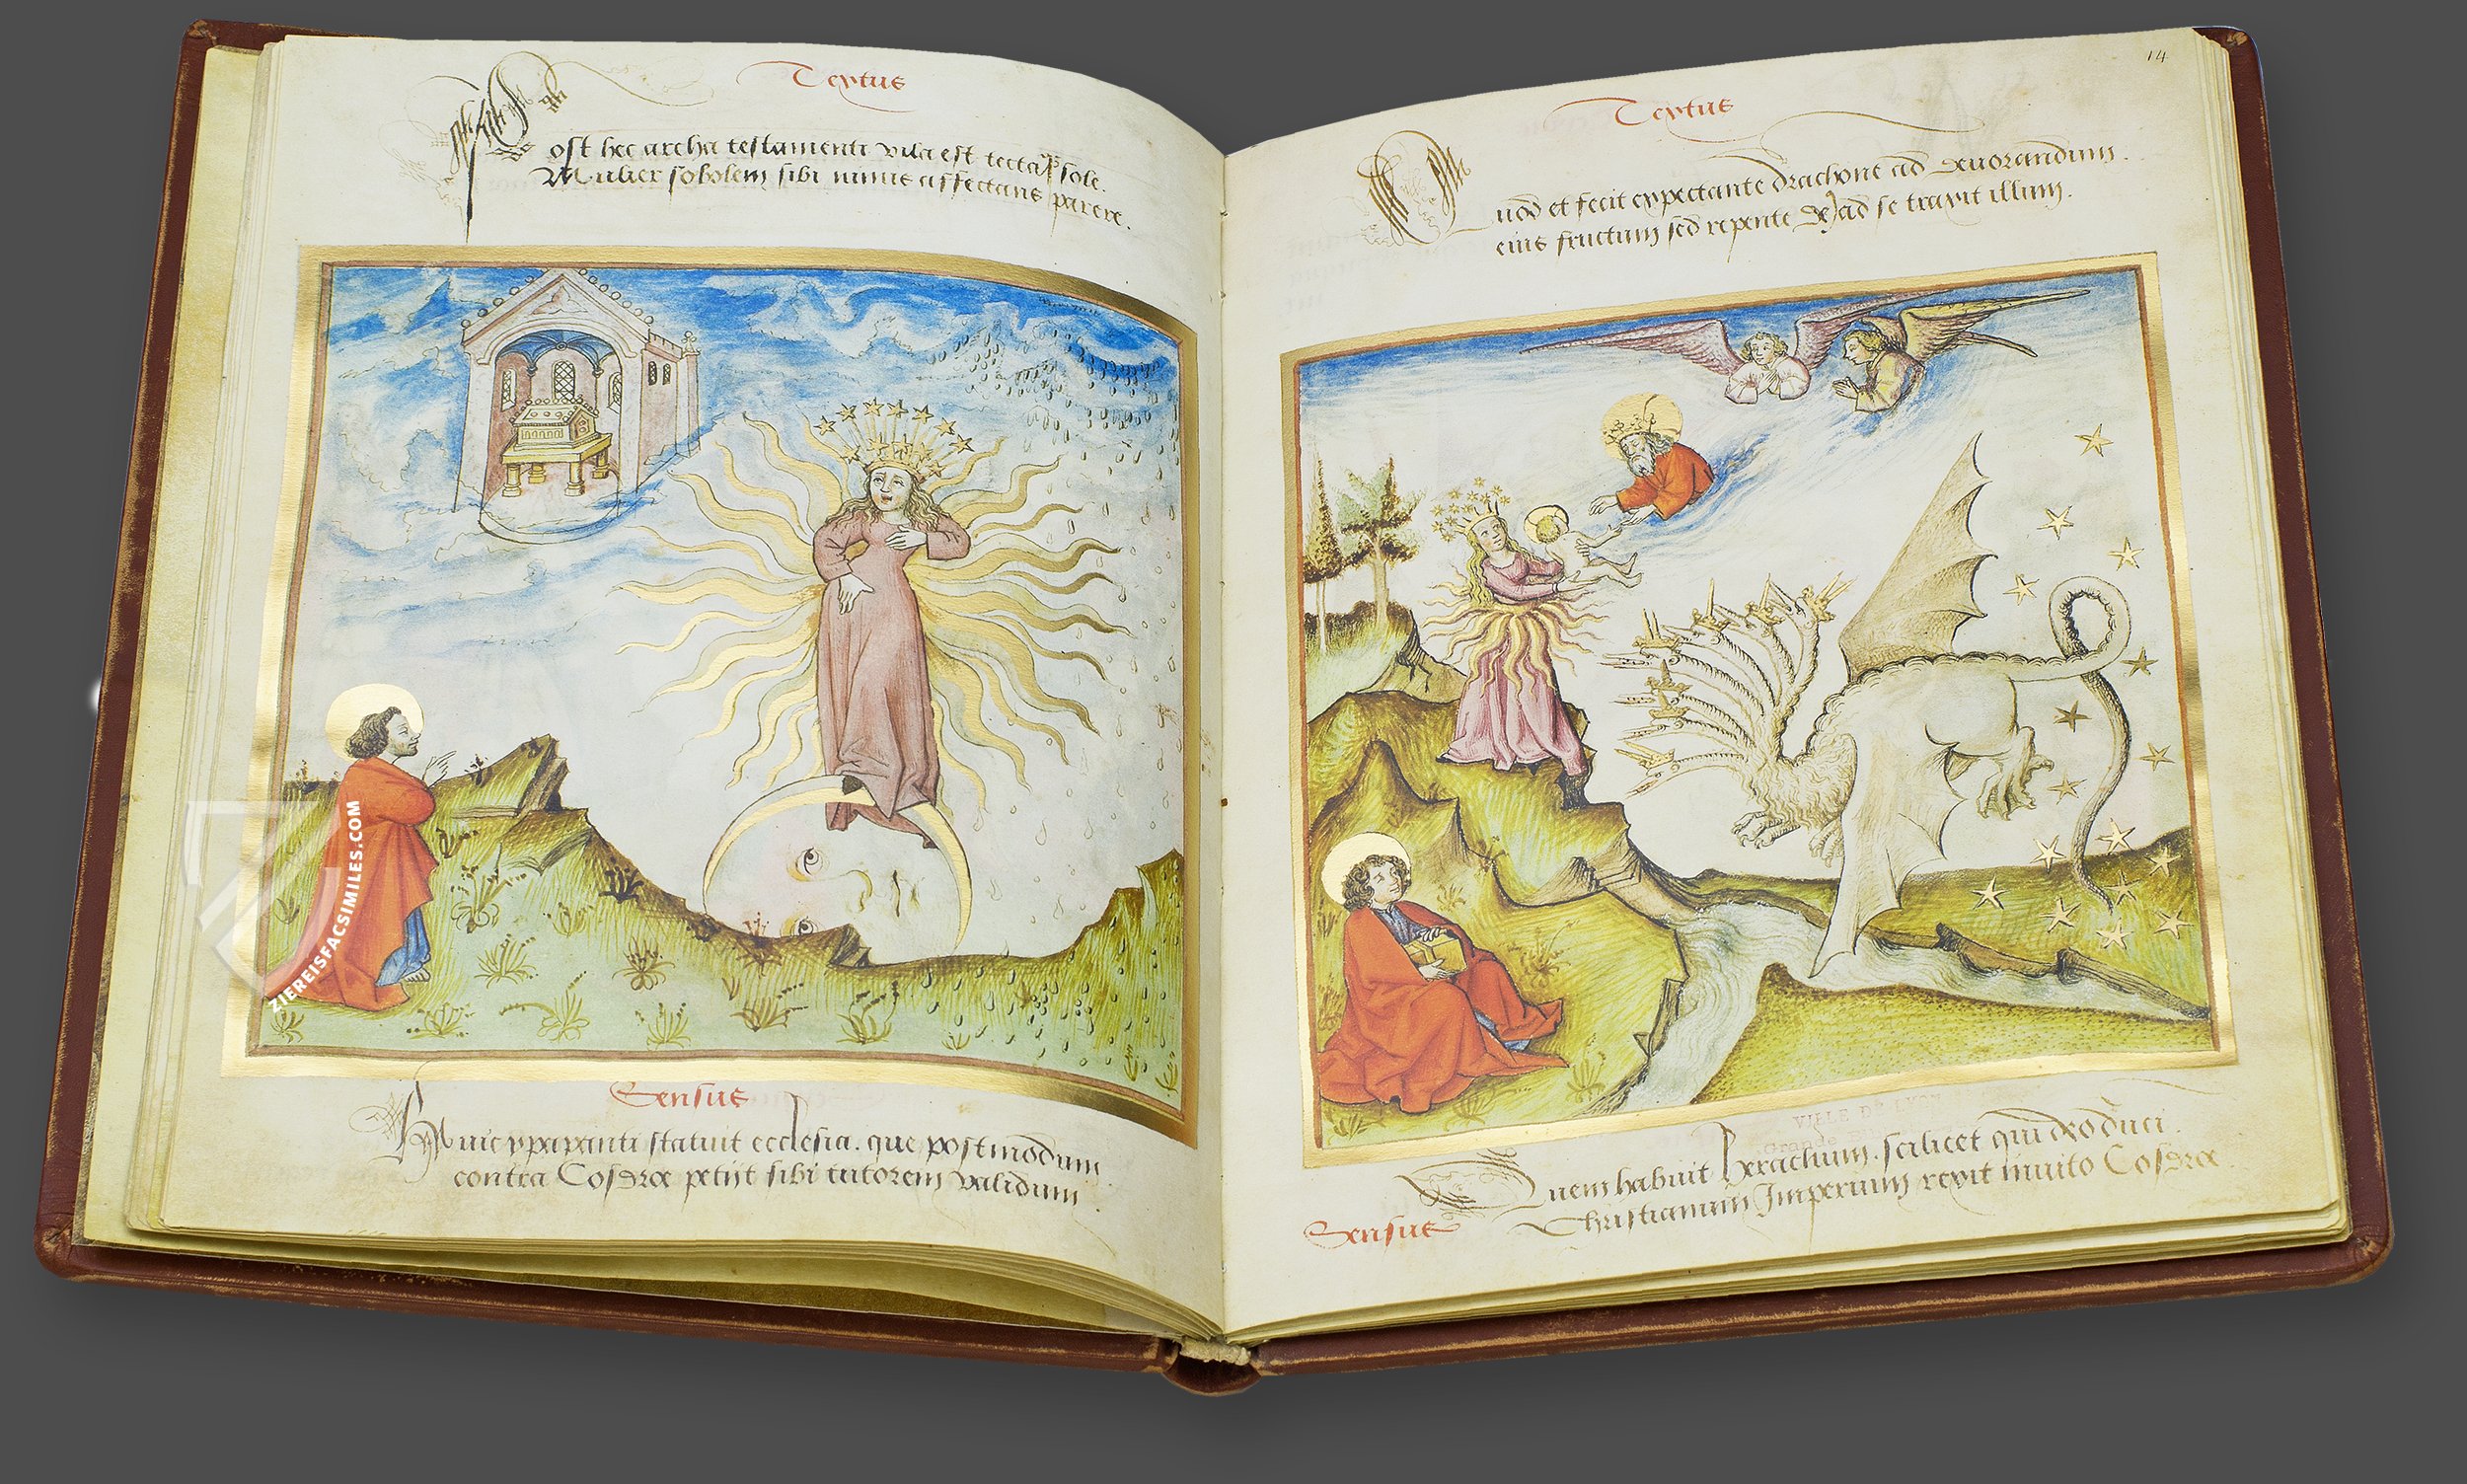 Textus
Post hec archa testamenti visa est tecta sole.
Mulier sobolem sibi nimis affectans parere.
Sensus
Huic ypapanti statuit ecclesia. que postmodum
contra Cosdroe petijt sibi tutorem validum
ZIEREISFACSIMILES.COM
14
Textus
Quod et fecit expectante drachone ad deuorandum.
eius fructum sed repente ad se traxit illum.
VILLE DE LYON
Quem habuit Heraclium. scilicet qui
Sensus Christianum Imperium rexit inuito Cosdroe